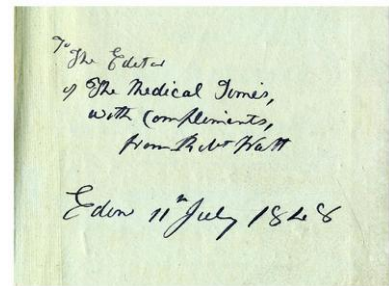 To
The Editor
of The Medical Times,
with Compliments,
from Robt Watt
Edin 11th July 1848